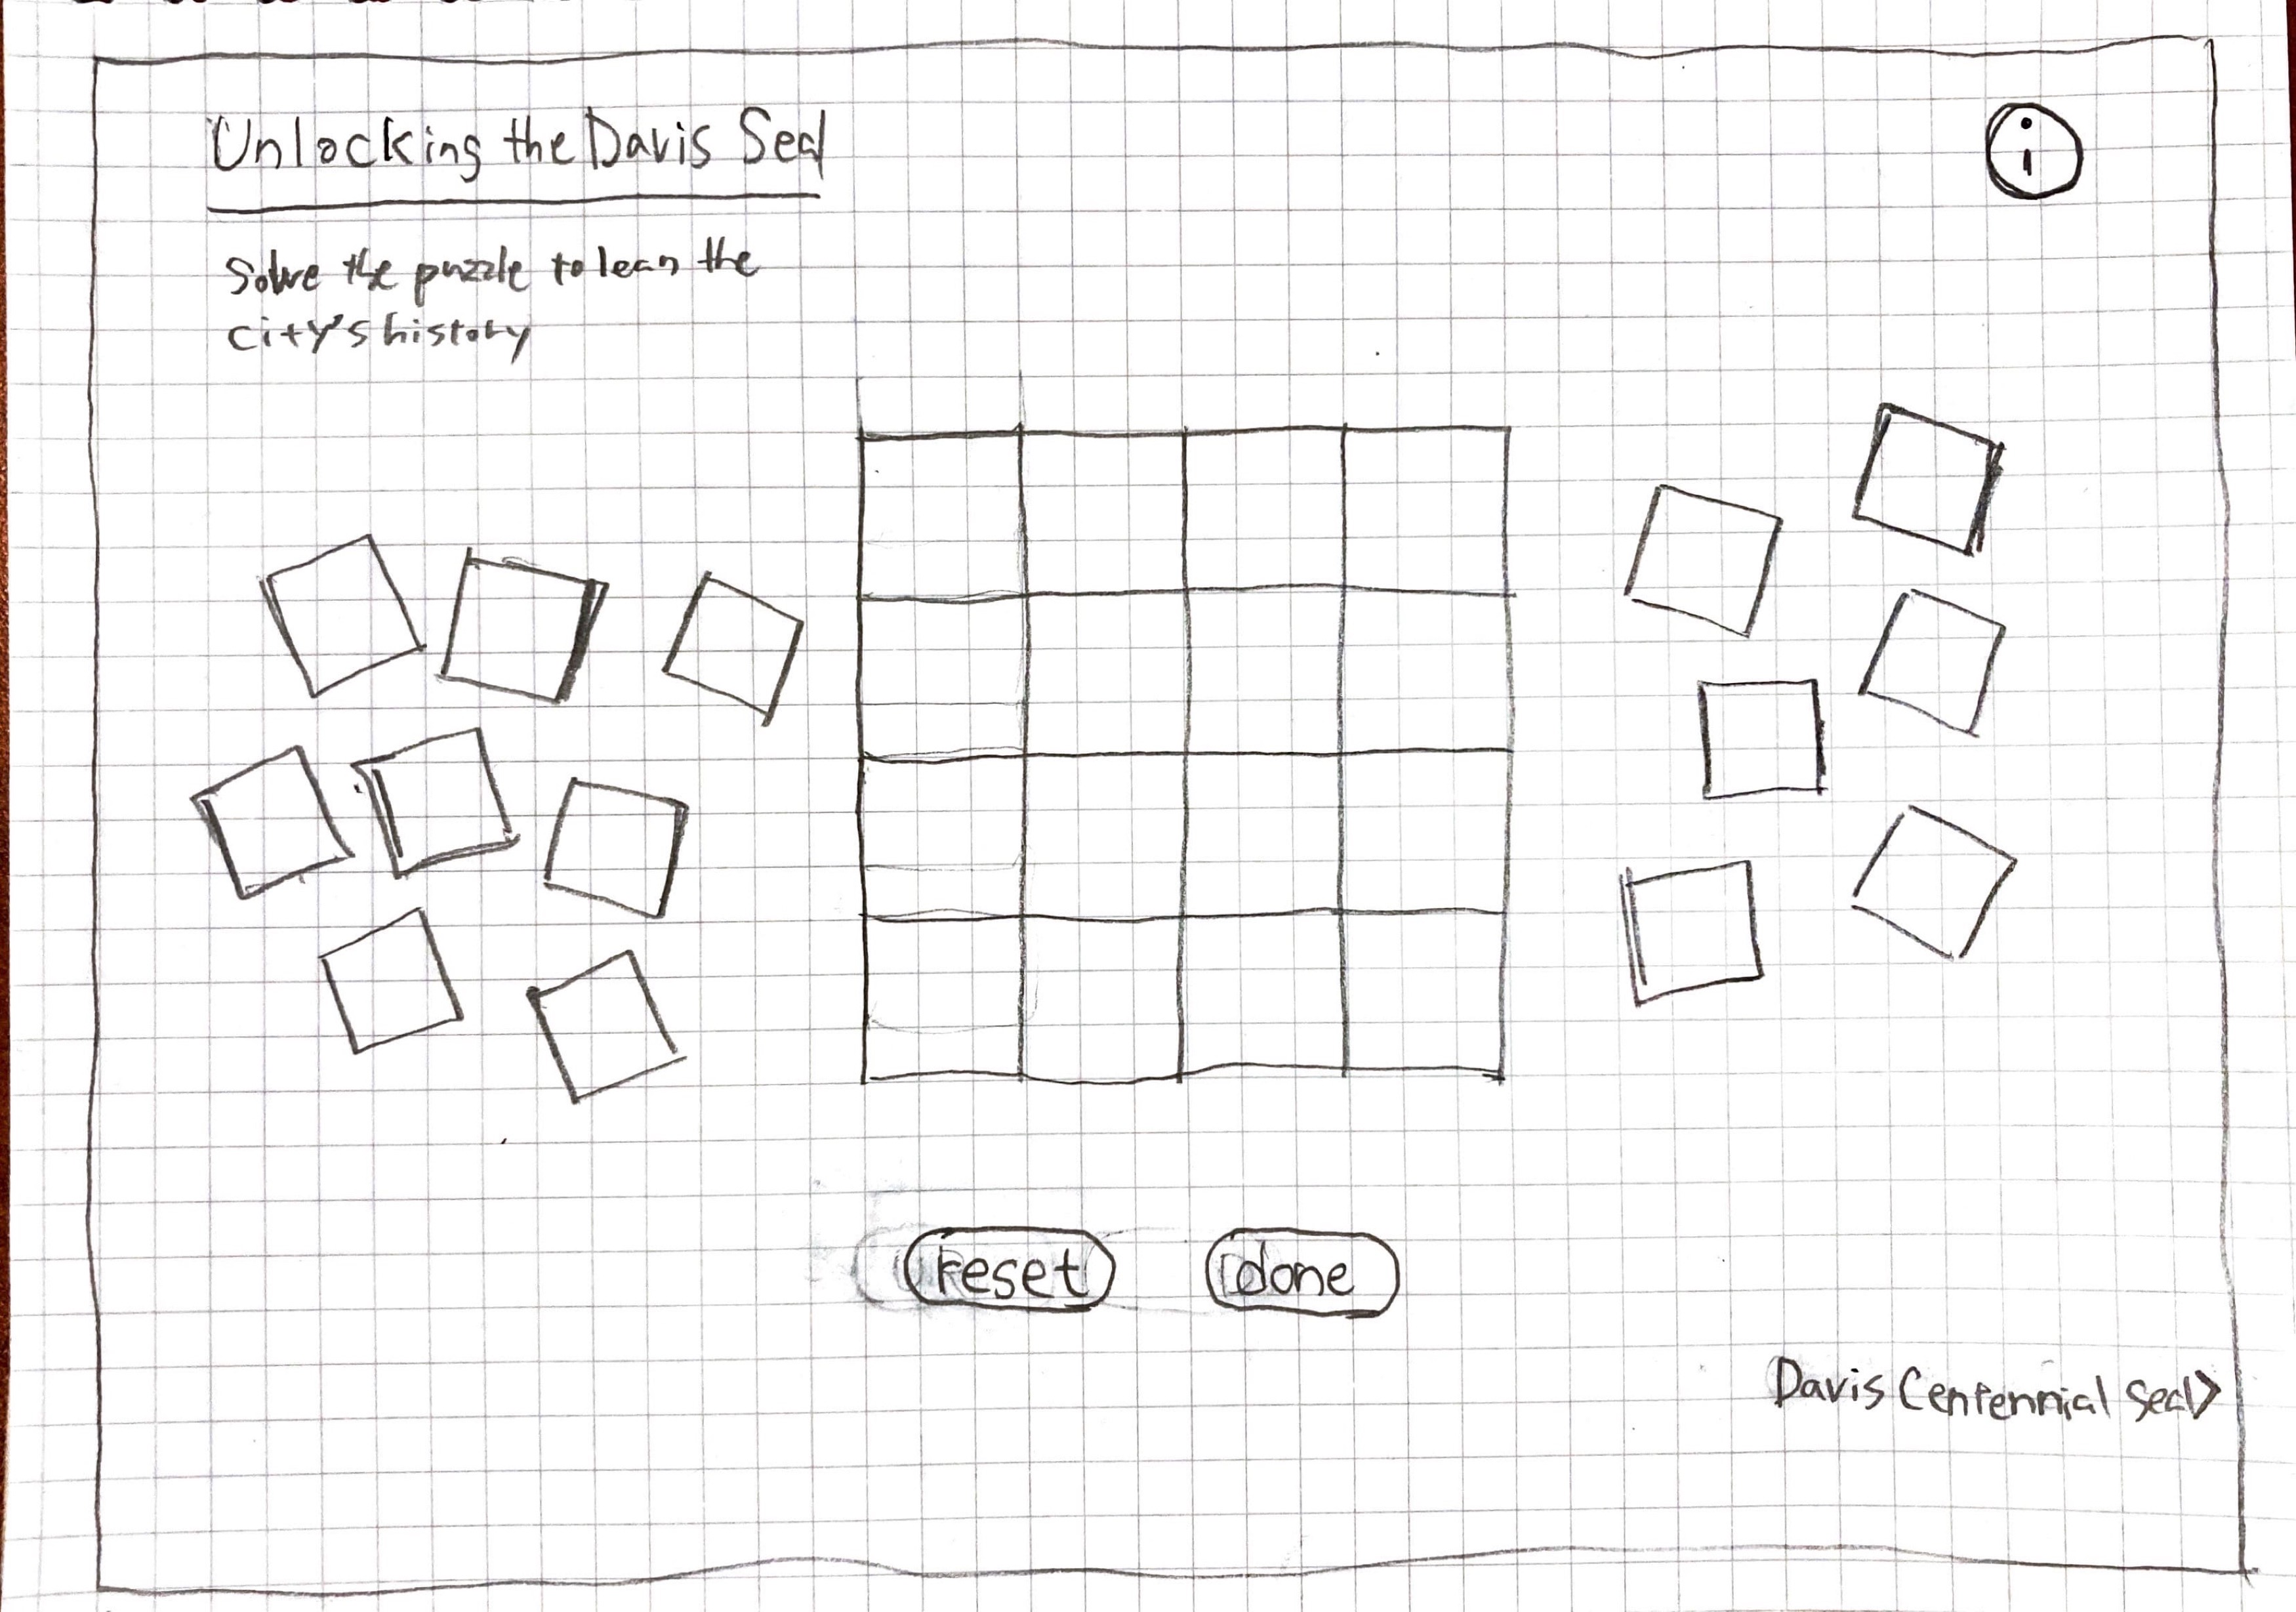 Unlocking the Davis Seal
i
Solve the puzzle to lean the
city's history
reset
done
Davis Centennial Seal>